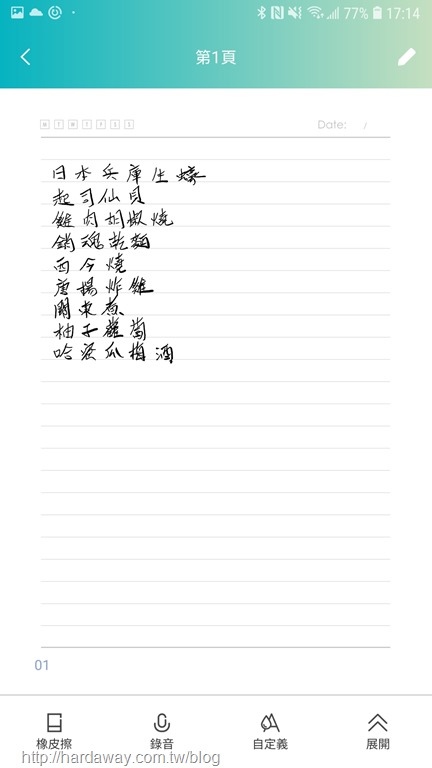 77% 17:14
第1頁
M T W T F S S Date: /
日本兵庫生蠔
起司仙貝
雞肉胡椒燒
銷魂乾麵
西今燒
唐揚炸雞
關東煮
柚子蘿蔔
哈密瓜梅酒
01
橡皮擦 錄音 自定義 展開
http://hardaway.com.tw/blog